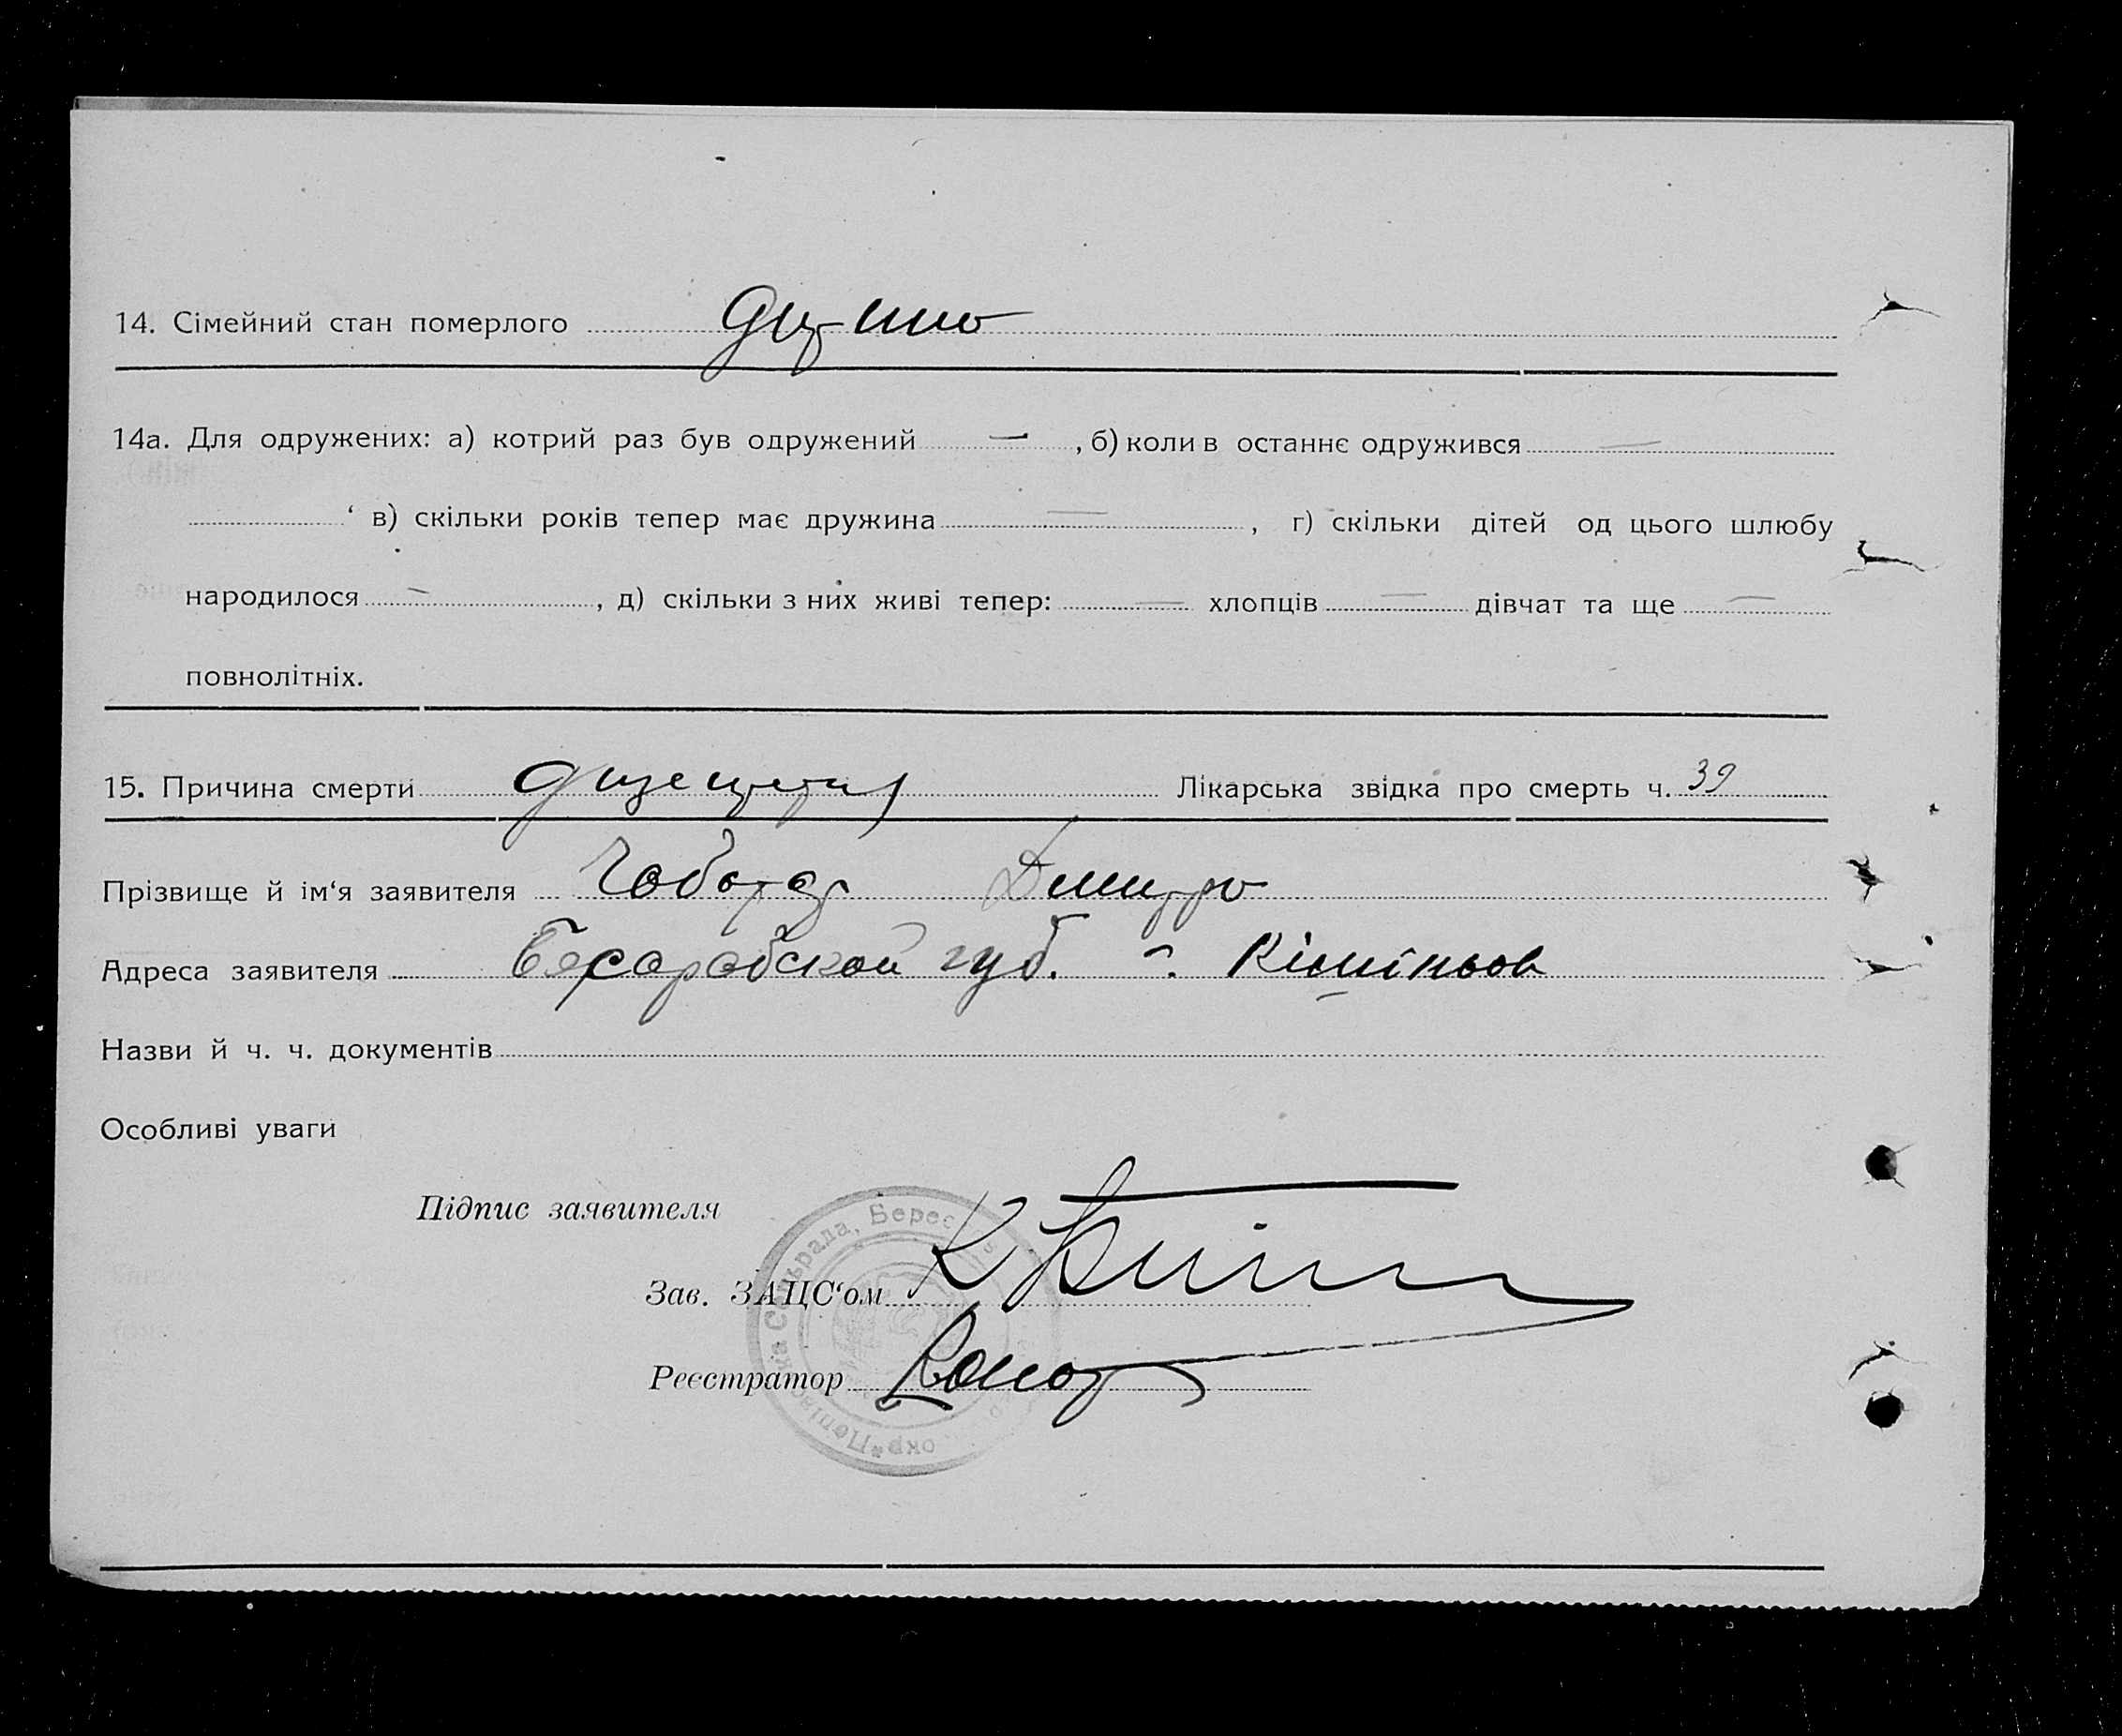 14. Сімейний стан померлого
14а. Для одружених: а) котрий раз був одружений — , б) коли в останнє одружився —
‘ в) скільки років тепер має дружина — , г) скільки дітей од цього шлюбу
народилося — , д) скільки з них живі тепер: — хлопців — дівчат та ще —
повнолітніх.
15. Причина смерти Лікарська звідка про смерть ч. 39
Прізвище й ім‘я заявителя Дмитро
Адреса заявителя Бесарабской губ. г. Кішіньов
Назви й ч. ч. документів
Особливі уваги
Підпис заявителя
Зав. ЗАЦС‘ом
Реєстратор